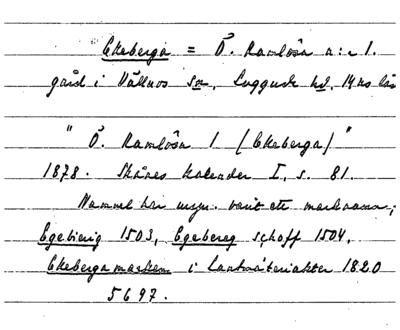 Ekeberga = Ö. Ramlösa n:r 1.
gård i Välluvs sn, Luggude hd, M-hs län
"Ö. Ramlösa 1 (Ekeberga)"
1878. Skånes kalender I, s. 81.
Namnet har urspr. varit ett marknamn;
Egebierig 1503, Egebereg schoff 1504,
Ekeberga marken i Lantmäteriakter 1820
5697.